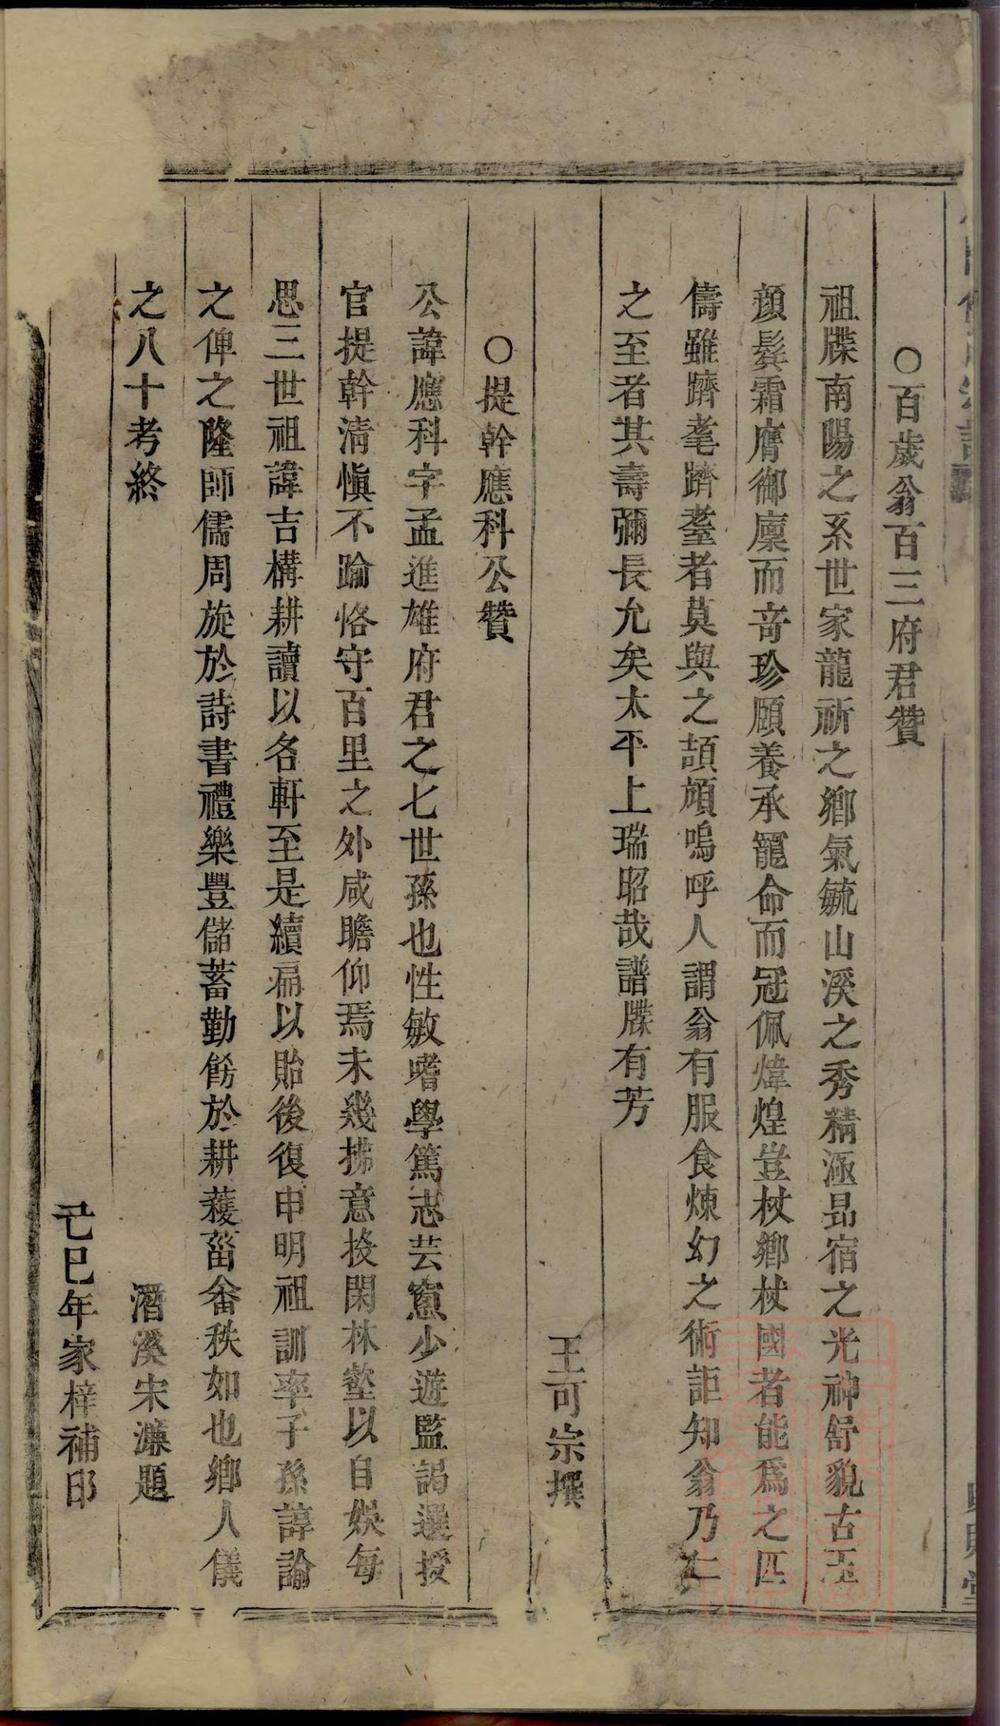 ○百歲翁百三府君贊
祖牒南陽之系世家龍祈之鄉氣毓山溪之秀精涵昴宿之光神舒貌古玉
顏鬂霜膺御廩而音珍頤養承寵命而冠佩煒煌豈杖鄉杖國者能爲之匹
儔雖躋耄躋耋者莫與之頡頏嗚呼人謂翁有服食煉幻之術詎知翁乃仁
之至者其壽彌長允矣太平上瑞昭哉譜牒有芳
王可宗撰
○提幹應科公贊
公諱應科字孟進雄府君之七世孫也性敏嗜學篤志芸窻少遊監謁選授
官提幹清愼不踰恪守百里之外咸瞻仰焉未幾拂意投閑林壑以自娛每
思三世祖諱吉構耕讀以名軒至是續扁以貽後復申明祖訓率子孫諄諭
之俾之隆師儒周旋於詩書禮樂豊儲蓄勤餝於耕蓘菑畬秩如也鄉人儀
之八十考終
潛溪宋濂題
己巳年家梓補邸